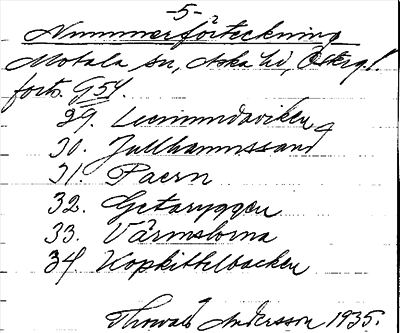 -5-
Nummerförteckning
Motala sn, Aska hd, Östergl.
forts. G54.
29.
30. Jullhammssand
31. Paern
32. Getaryggen
33. Värmslorna
34. Kopkittelbacken
Thorvald Andersson 1935.